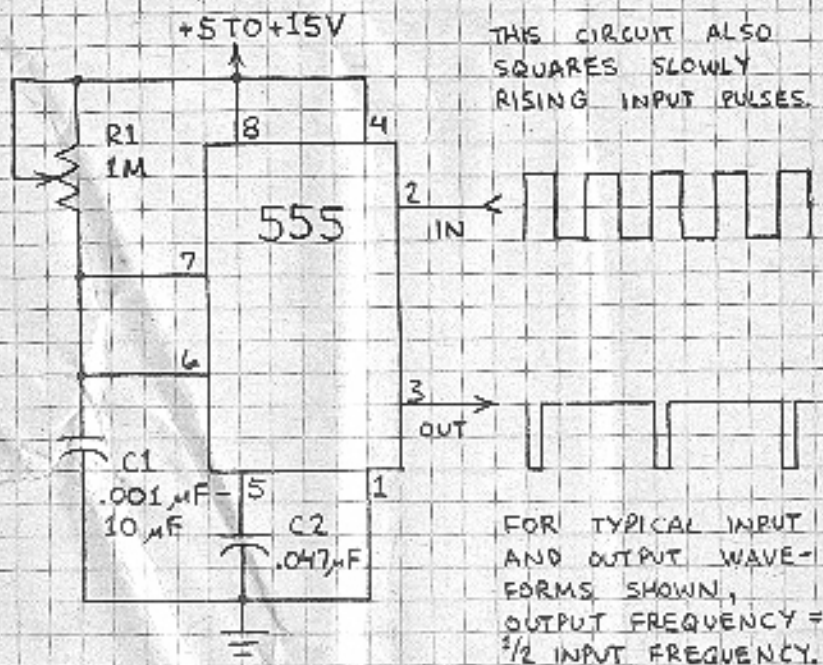 +5 TO +15V
THIS CIRCUIT ALSO
SQUARES SLOWLY
RISING INPUT PULSES.
R1
1M
8
4
555
2
IN
7
6
3
OUT
C1
.001µF-
10µF
5
1
C2
.047µF
FOR TYPICAL INPUT
AND OUTPUT WAVE-
FORMS SHOWN,
OUTPUT FREQUENCY =
1/2 INPUT FREQUENCY.